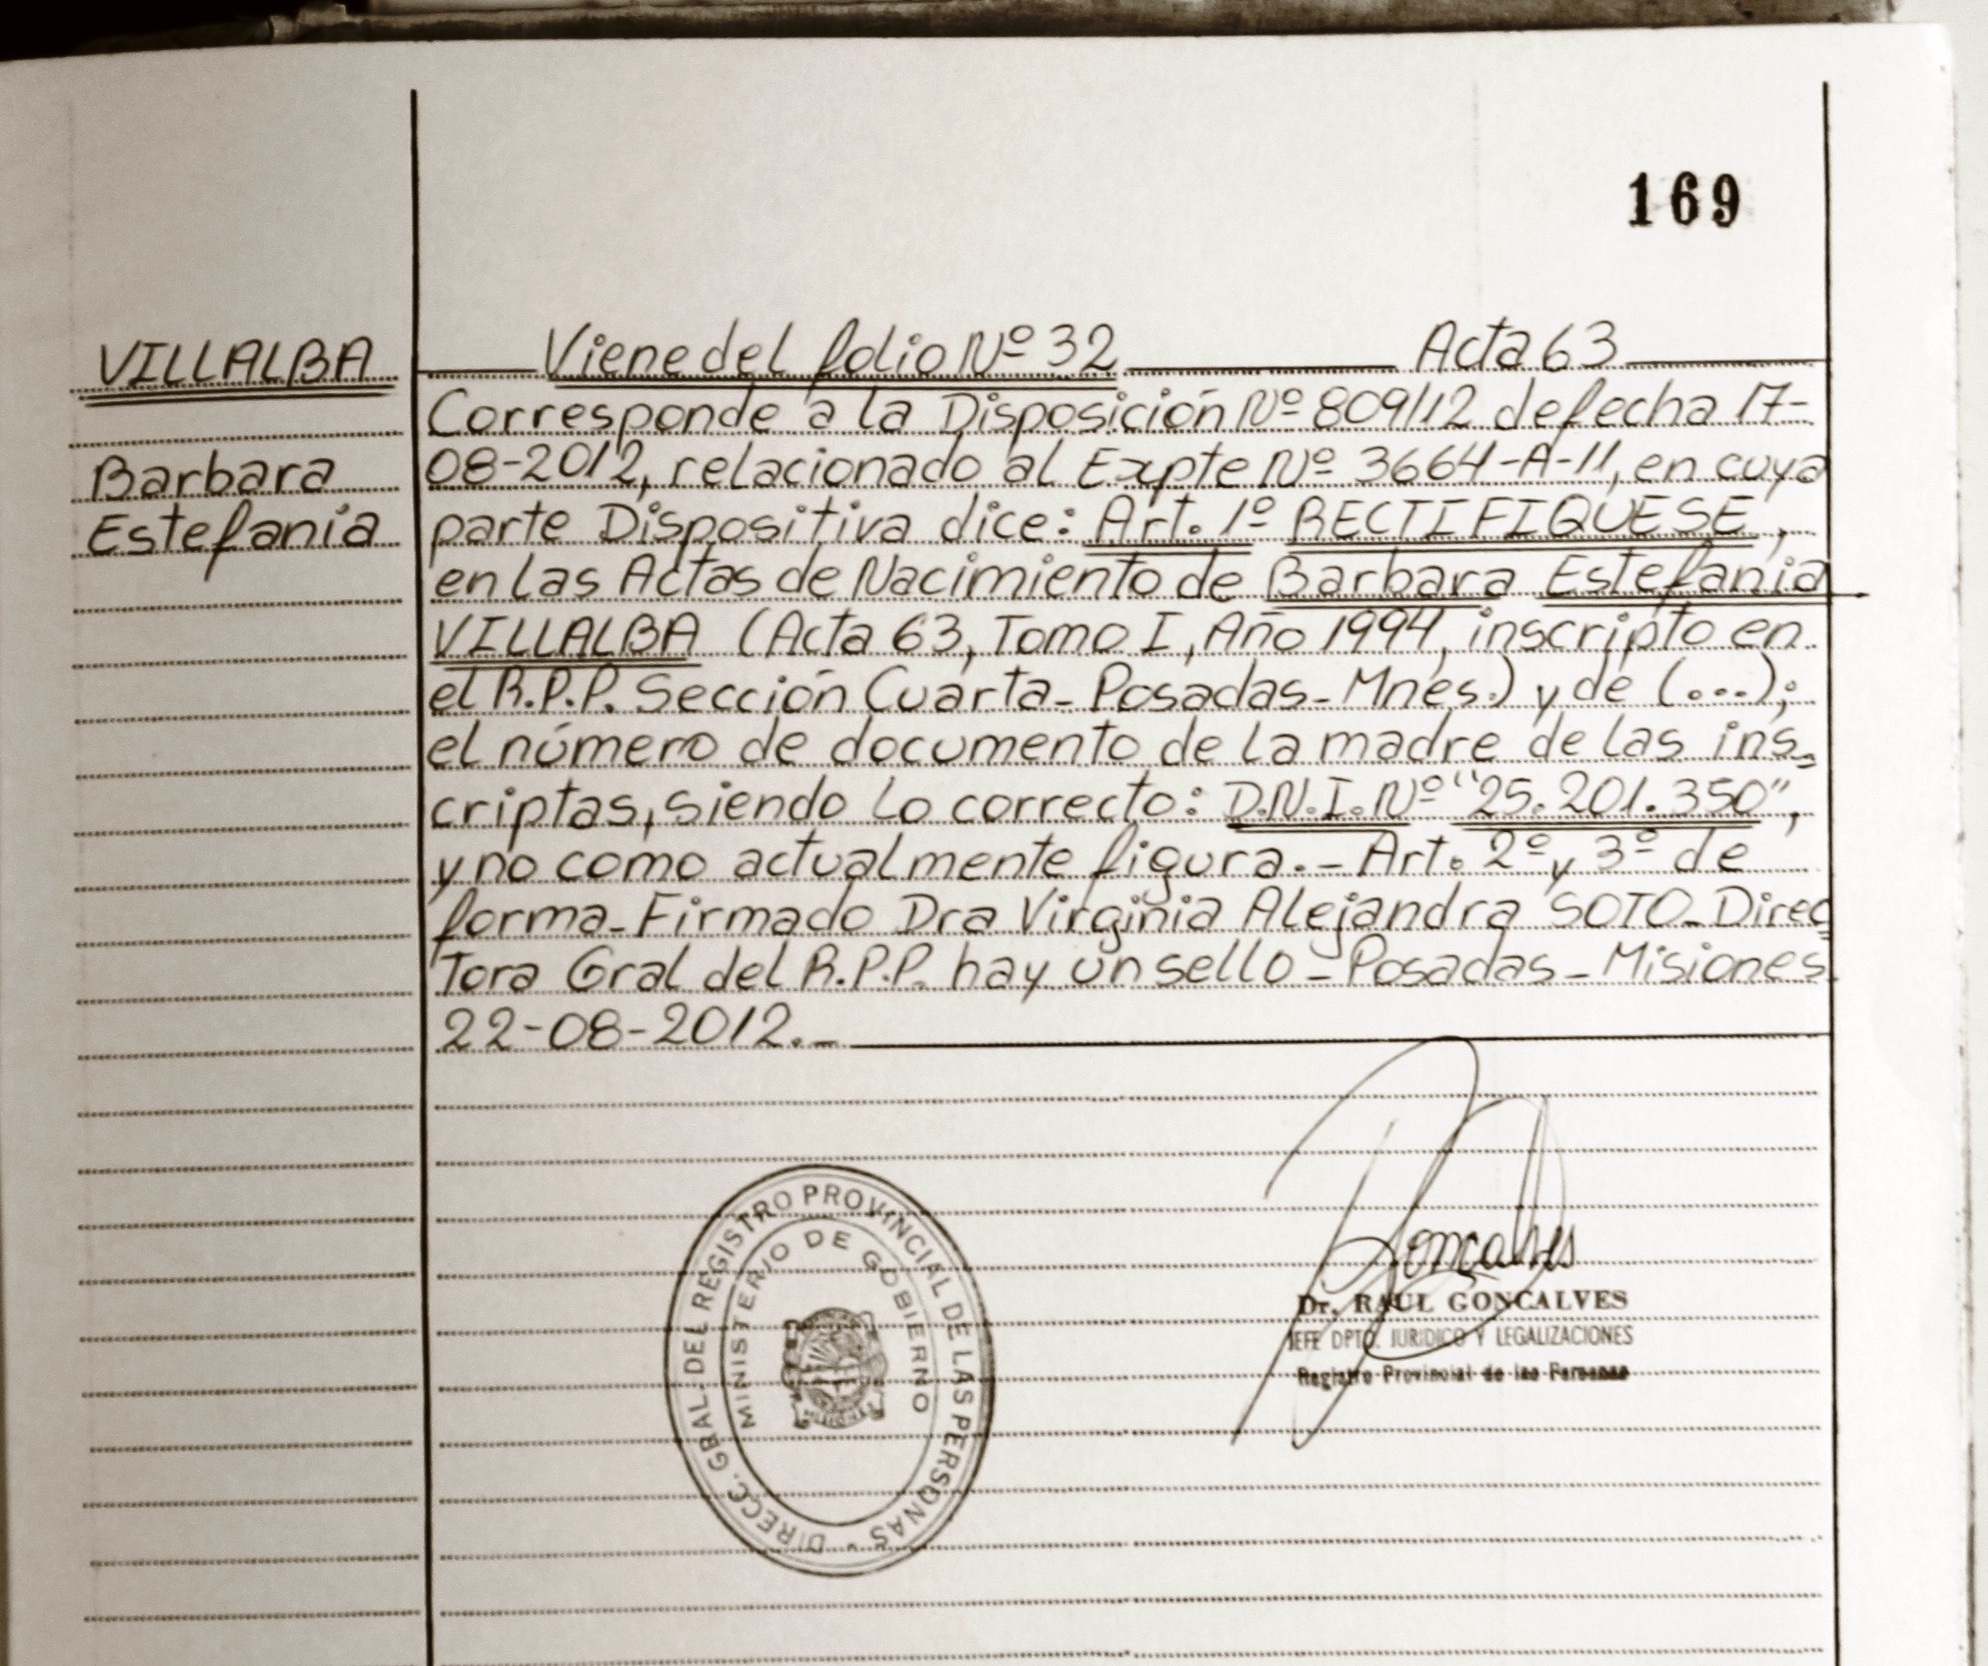 169
VILLALBA
Barbara
Estefania
Viene del folio Nº 32 Acta 63
Corresponde a la Disposición Nº 809/12 de fecha 17-
08-2012, relacionado al Expte Nº 3664-A-11, en cuya
parte Dispositiva dice: Art. 1º RECTIFIQUESE,
en las Actas de Nacimiento de Barbara Estefania
VILLALBA (Acta 63, Tomo I, Año 1994, inscripto en
el R.P.P. Sección Cuarta-Posadas-Mnes.) y de (...);
el número de documento de la madre de las ins-
criptas, siendo lo correcto: D.N.I. Nº "25.201.350",
y no como actualmente figura.- Art. 2º y 3º de
forma-Firmado Dra Virginia Alejandra SOTO-Direc
tora Gral del R.P.P. hay un sello-Posadas-Misiones
22-08-2012.-
DIRECC. GRAL. DEL REGISTRO PROVINCIAL DE LAS PERSONAS
MINISTERIO DE GOBIERNO
MISIONES
Goncalves
Dr. RAUL GONCALVES
JEFE DPTO. JURIDICO Y LEGALIZACIONES
Registro Provincial de las Personas